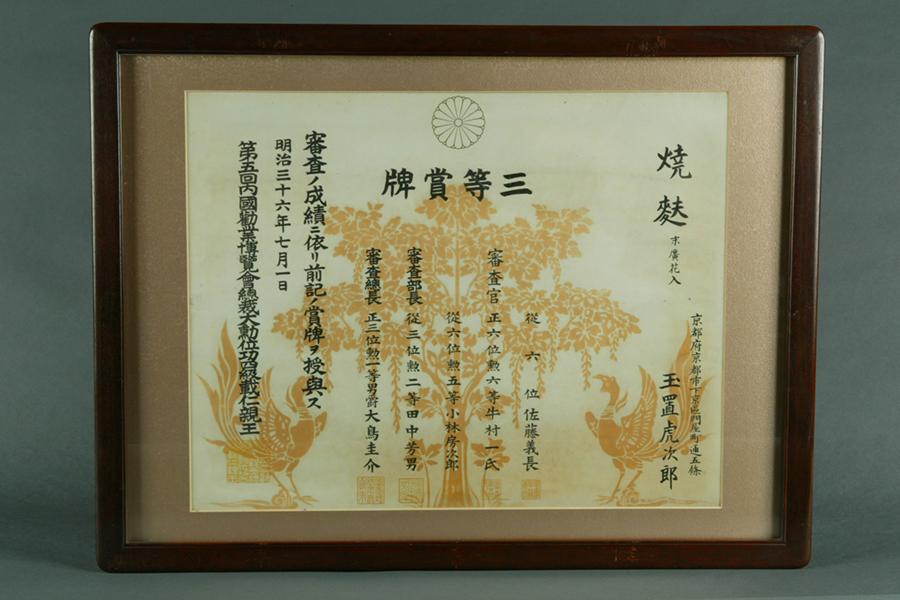 燒麩
末廣花入
京都府京都市下京區門屋町通五條
玉置虎次郎
三等賞牌
從六位佐藤義長
審査官 正六位勲六等牛村一氏
從六位勲五等小林房次郎
審査部長 從三位勲二等田中芳男
審査總長 正三位勲一等男爵大鳥圭介
審査ノ成績ニ依リ前記ノ賞牌ヲ授與ス
明治三十六年七月一日
第五回內國勸業博覽會總裁大勲位功四級載仁親王